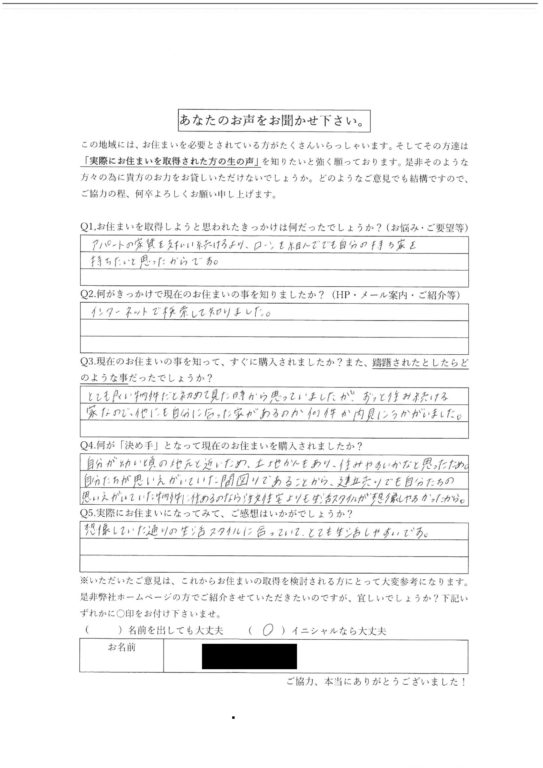 あなたのお声をお聞かせ下さい。
この地域には、お住まいを必要とされている方がたくさんいらっしゃいます。そしてその方達は
「実際にお住まいを取得された方の生の声」を知りたいと強く願っております。是非そのような
方々の為に貴方のお力をお貸しいただけないでしょうか。どのようなご意見でも結構ですので、
ご協力の程、何卒よろしくお願い申し上げます。
Q1.お住まいを取得しようと思われたきっかけは何だったでしょうか？（お悩み・ご要望等）
アパートの家賃を支払い続けるより、ローンを組んででも自分の持ち家を
持ちたいと思ったからです。
Q2.何がきっかけで現在のお住まいの事を知りましたか？（HP・メール案内・ご紹介等）
インターネットで検索して知りました。
Q3.現在のお住まいの事を知って、すぐに購入されましたか？また、躊躇されたとしたらど
のような事だったでしょうか？
とても良い物件だと初めて見た時から思っていましたが、ずっと住み続ける
家なので、他にも自分に合った家があるのか何件か内見にうかがいました。
Q4.何が「決め手」となって現在のお住まいを購入されましたか？
自分が幼い頃の地元と近いため、土地かんもあり、住みやすいかなと思ったため。
自分たちが思いえがいていた間図りであることから、建売りでも自分たちの
思いえがいていた物件に住めるのなら注文住宅よりも生活スタイルが想像しやすかったから。
Q5.実際にお住まいになってみて、ご感想はいかがでしょうか？
想像していた通りの生活スタイルに合っていて、とても生活しやすいです。
※いただいたご意見は、これからお住まいの取得を検討される方にとって大変参考になります。
是非弊社ホームページの方でご紹介させていただきたいのですが、宜しいでしょうか？下記い
ずれかに○印をお付け下さいませ。
（　　）名前を出しても大丈夫　（　○　）イニシャルなら大丈夫
お名前
ご協力、本当にありがとうございました！